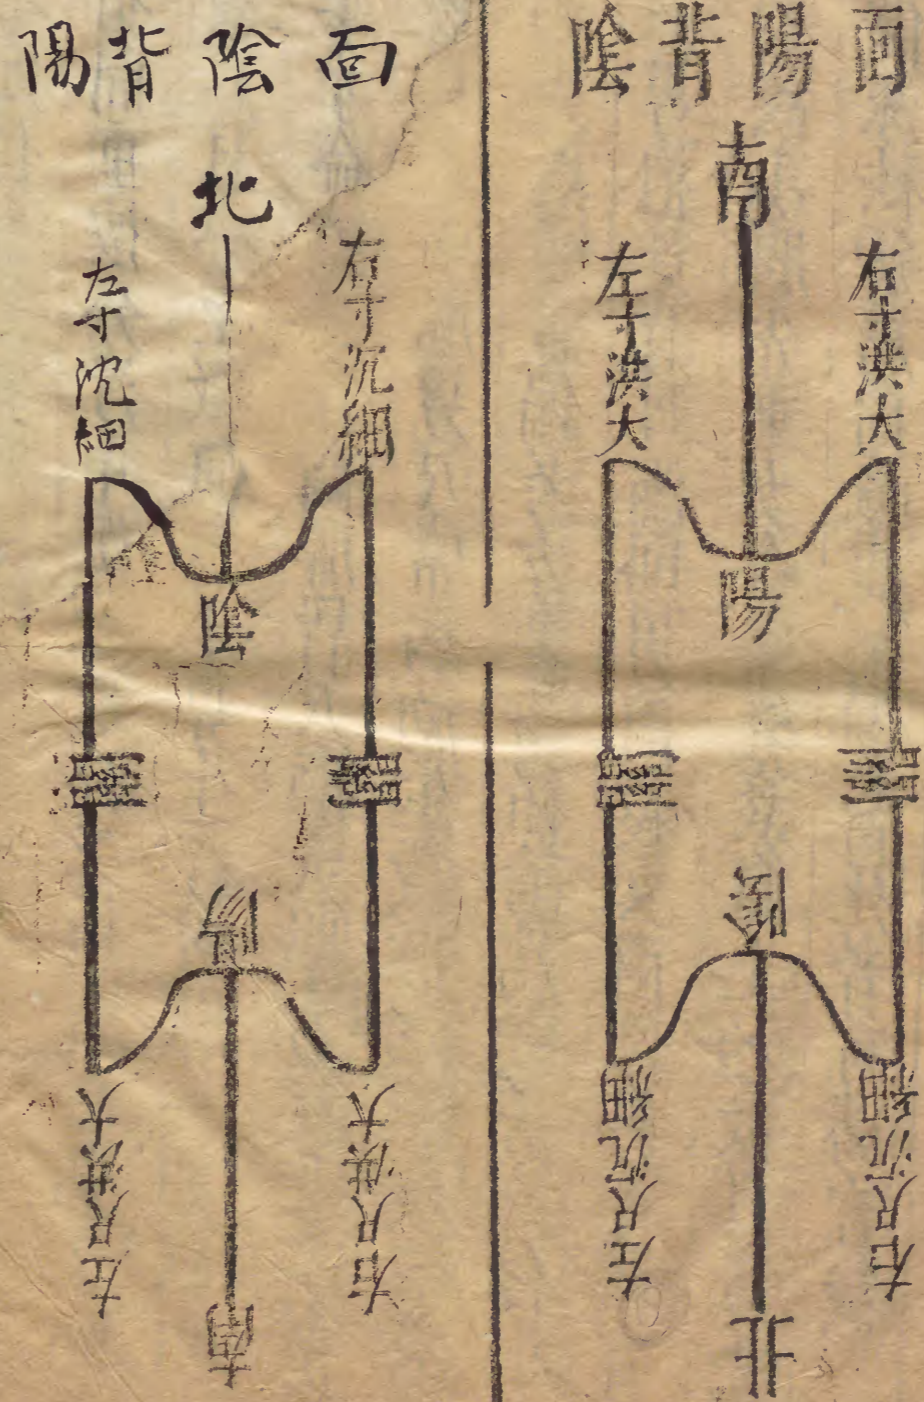 面陽背陰
南
右寸洪大
左寸洪大
陽
關
關
陰
右尺沉細
左尺沉細
北
面陰背陽
北
右寸沉細
左寸沈細
陰
關
關
陽
右尺洪大
左尺洪大
南